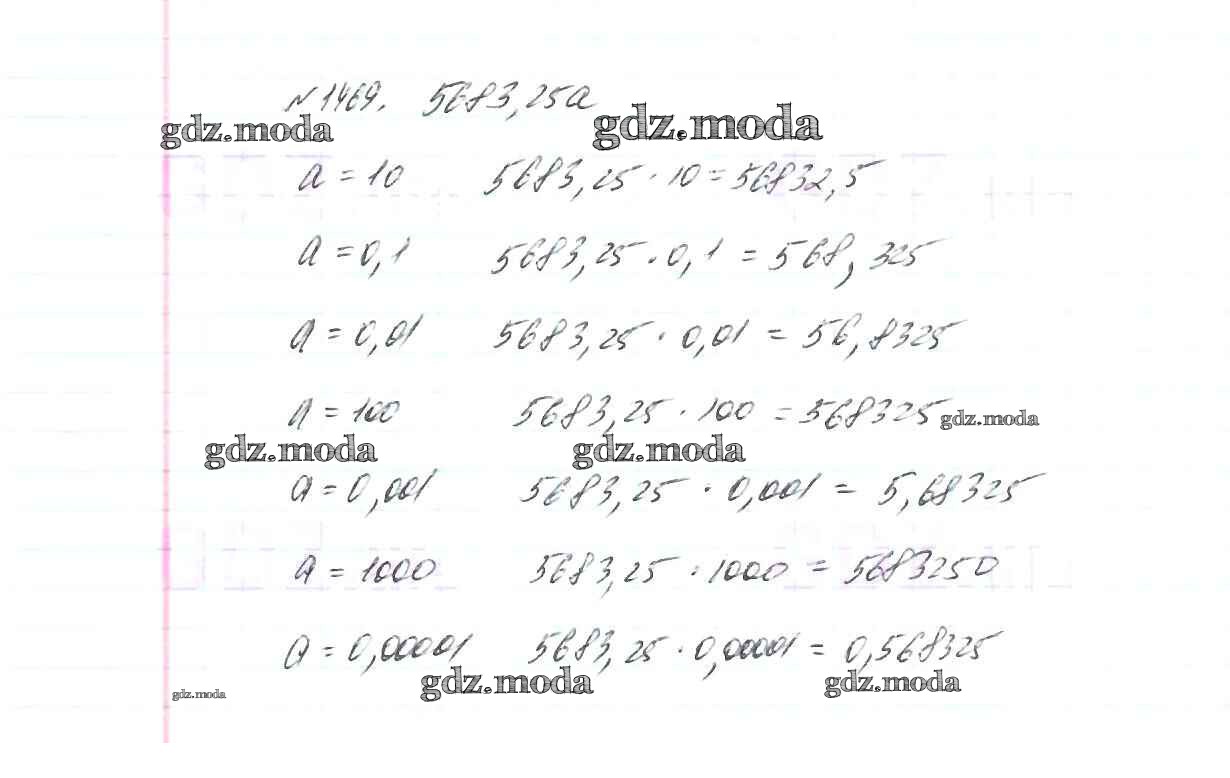 № 1469. 5683,25a
gdz.moda gdz.moda
a = 10 5683,25 · 10 = 56832,5
a = 0,1 5683,25 · 0,1 = 568,325
a = 0,01 5683,25 · 0,01 = 56,8325
a = 100 5683,25 · 100 = 568325 gdz.moda
gdz.moda gdz.moda
a = 0,001 5683,25 · 0,001 = 5,68325
a = 1000 5683,25 · 1000 = 5683250
a = 0,00001 5683,25 · 0,00001 = 0,568325
gdz.moda gdz.moda gdz.moda